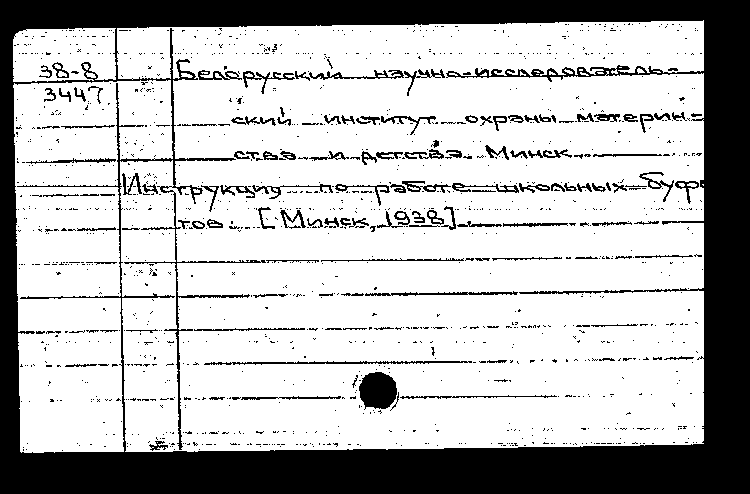 38-8 Белорусский научно-исследователь-
3447
ский институт охраны материн-
ства и детства. Минск.
Инструкция по работе школьных буфе
тов. [Минск, 1938].